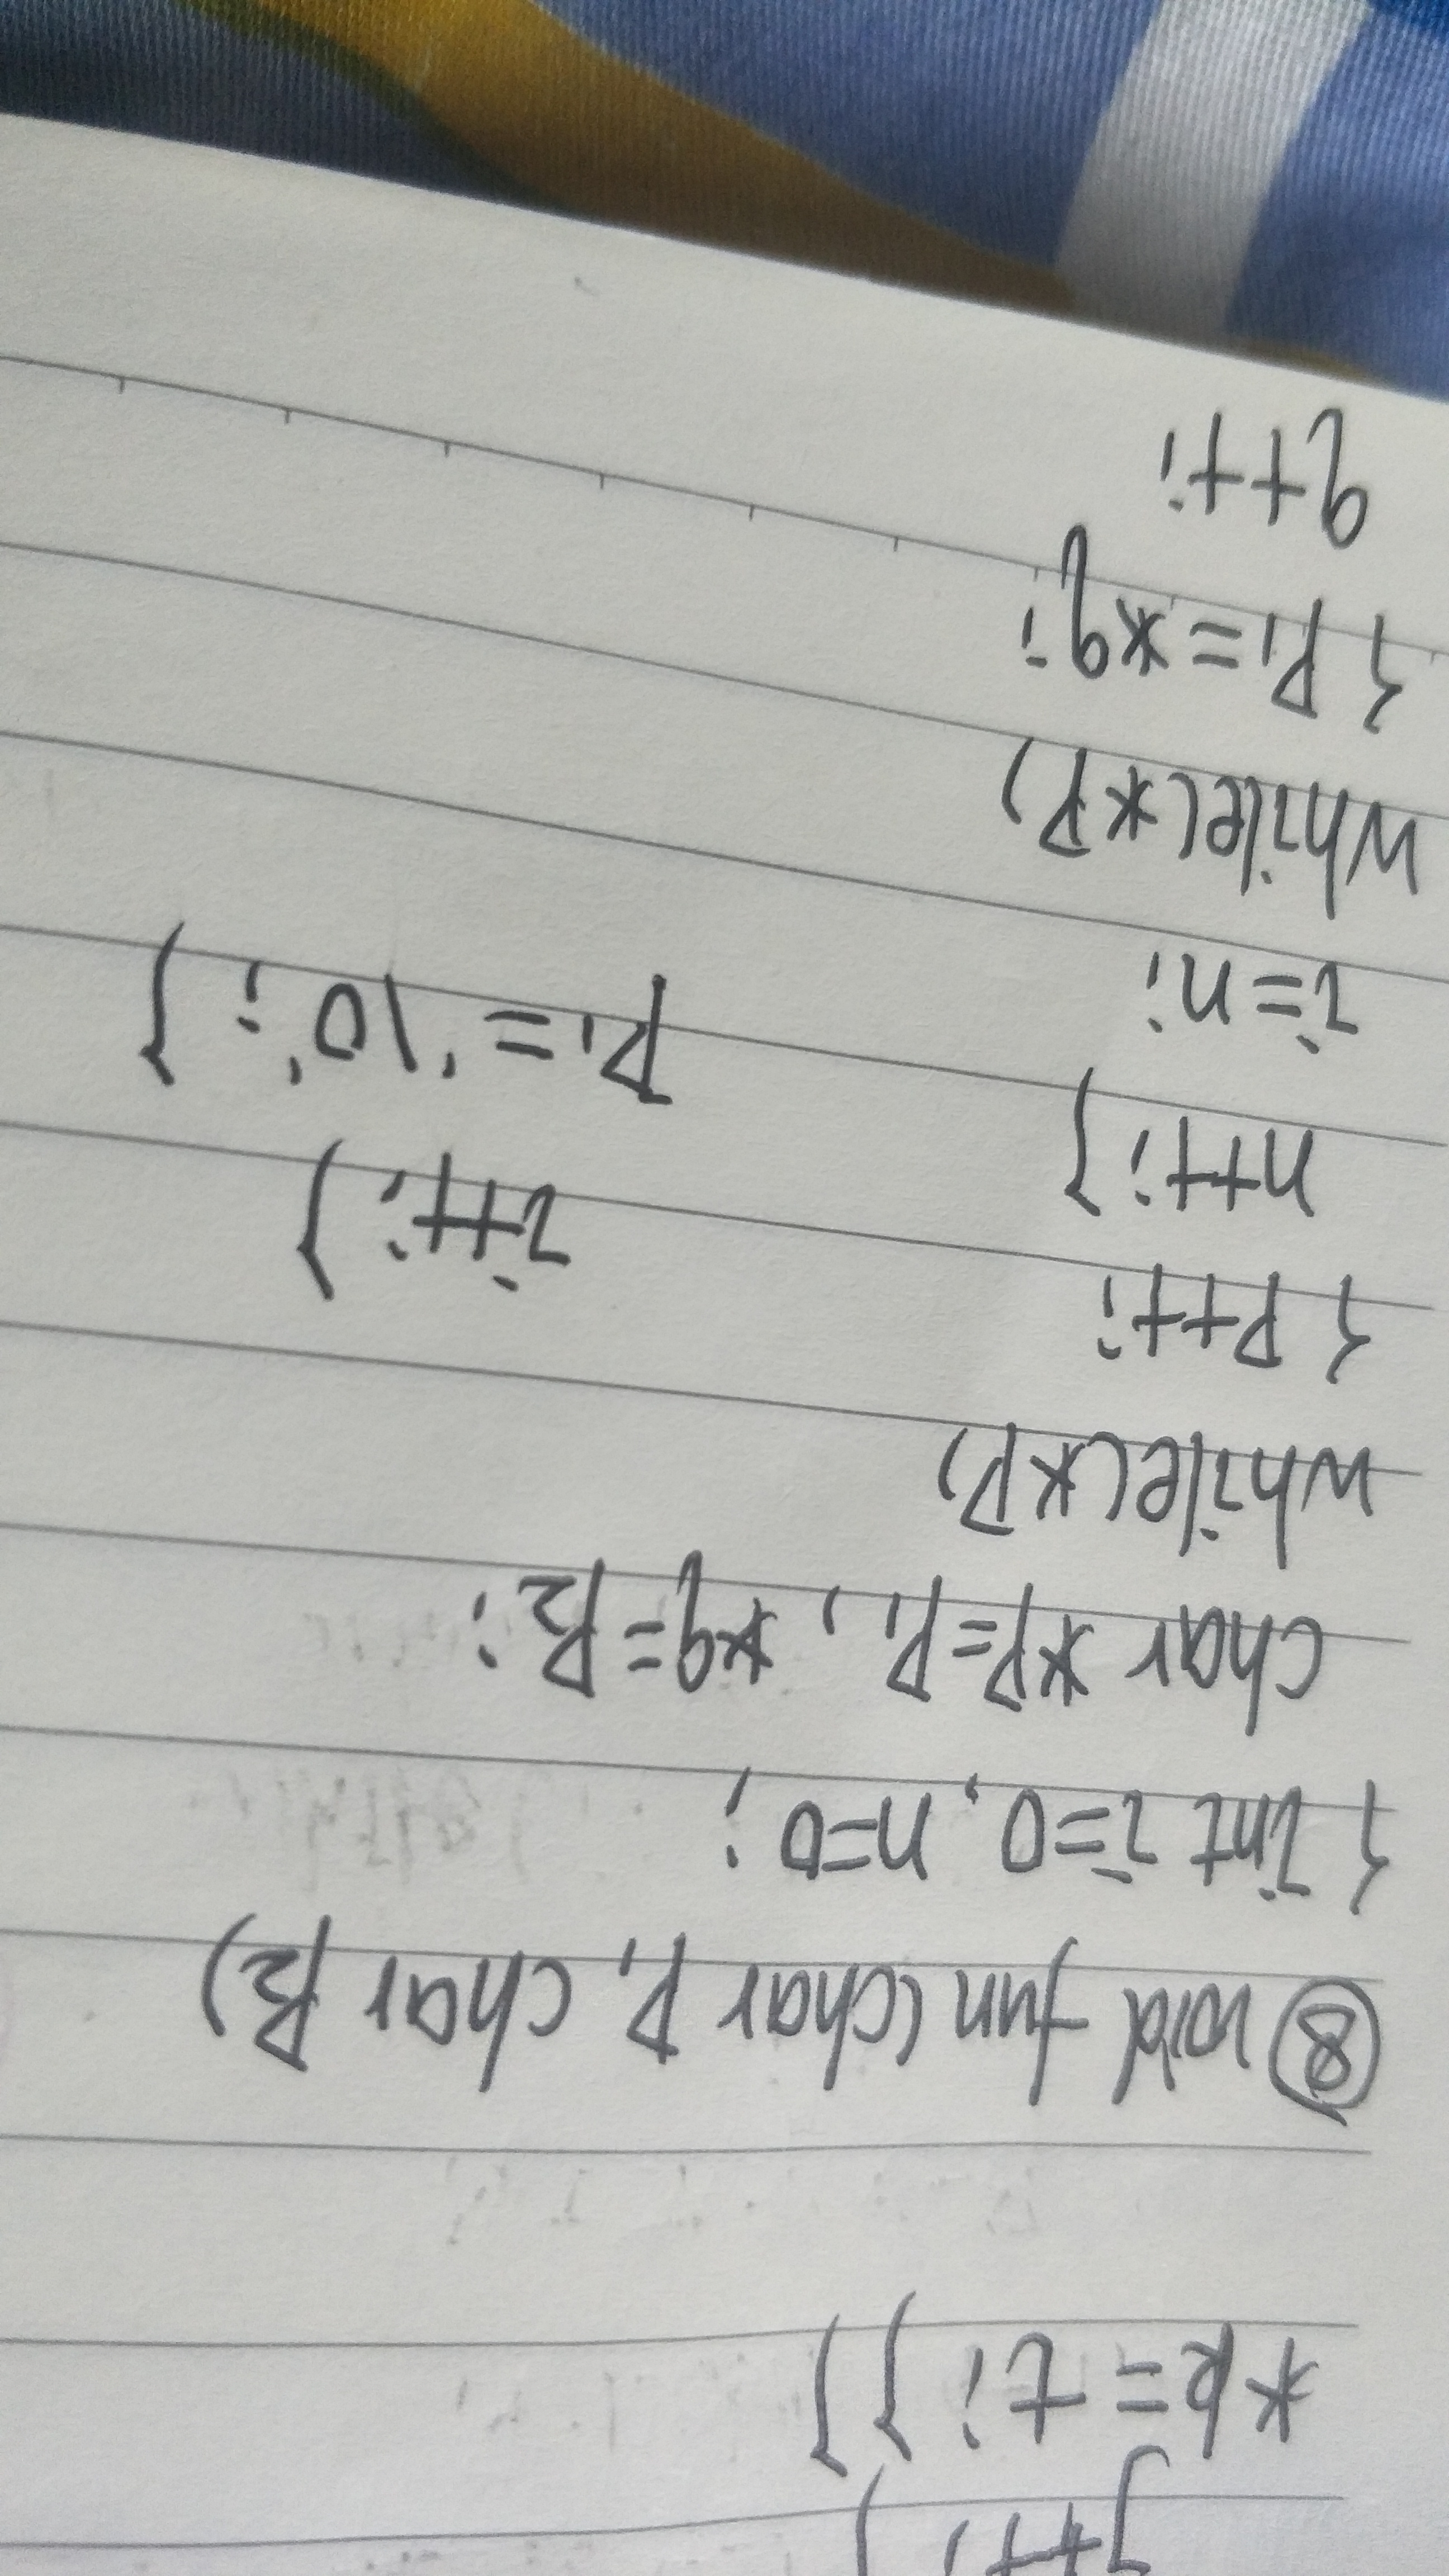 j++; }
*k=t; }}
⑧ void fun (char P1, char P2)
{ int i=0, n=0;
char *P=P1, *q=P2;
while(*P)
{ P++;
n++; }
i=n;
while(*P)
{ P1=*q;
q++;
i++; }
P1='\0'; }